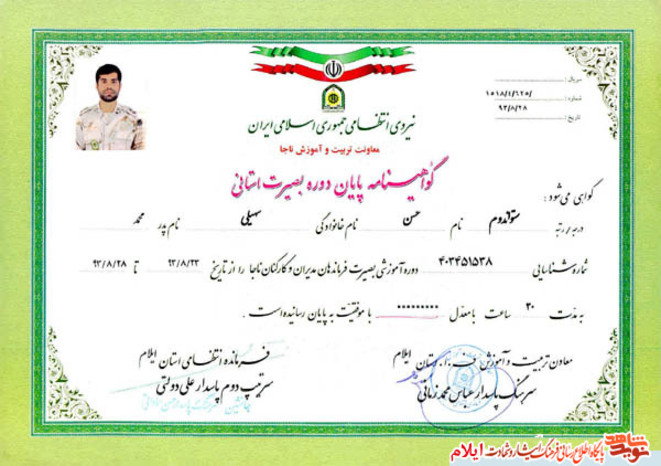 نیروی انتظامی جمهوری اسلامی ایران
معاونت تربیت و آموزش ناجا
سریال:
شماره: ۱۵۱۸/۴/۱۲۵/
تاریخ: ۹۳/۸/۲۸
گواهینامه پایان دوره بصیرت استانی
گواهی می شود:
درجه/رتبه ستواندوم نام حسن نام خانوادگی سهیلی نام پدر محمد
شماره شناسایی ۴۰۳۴۵۱۵۳۸ دوره آموزشی بصیرت فرماندهان مدیران و کارکنان ناجا را از تاریخ ۹۳/۸/۲۳ تا ۹۳/۸/۲۸
به مدت ۳۰ ساعت با معدل ********* با موفقیت به پایان رسانیده است.
معاون تربیت و آموزش ف.ا.استان ایلام
سرهنگ پاسدار عباس محمدزمانی
فرمانده انتظامی استان ایلام
سرتیپ دوم پاسدار علی دولتی
جانشین
نوید شاهد
پایگاه اطلاع رسانی فرهنگ ایثار و شهادت ایلام